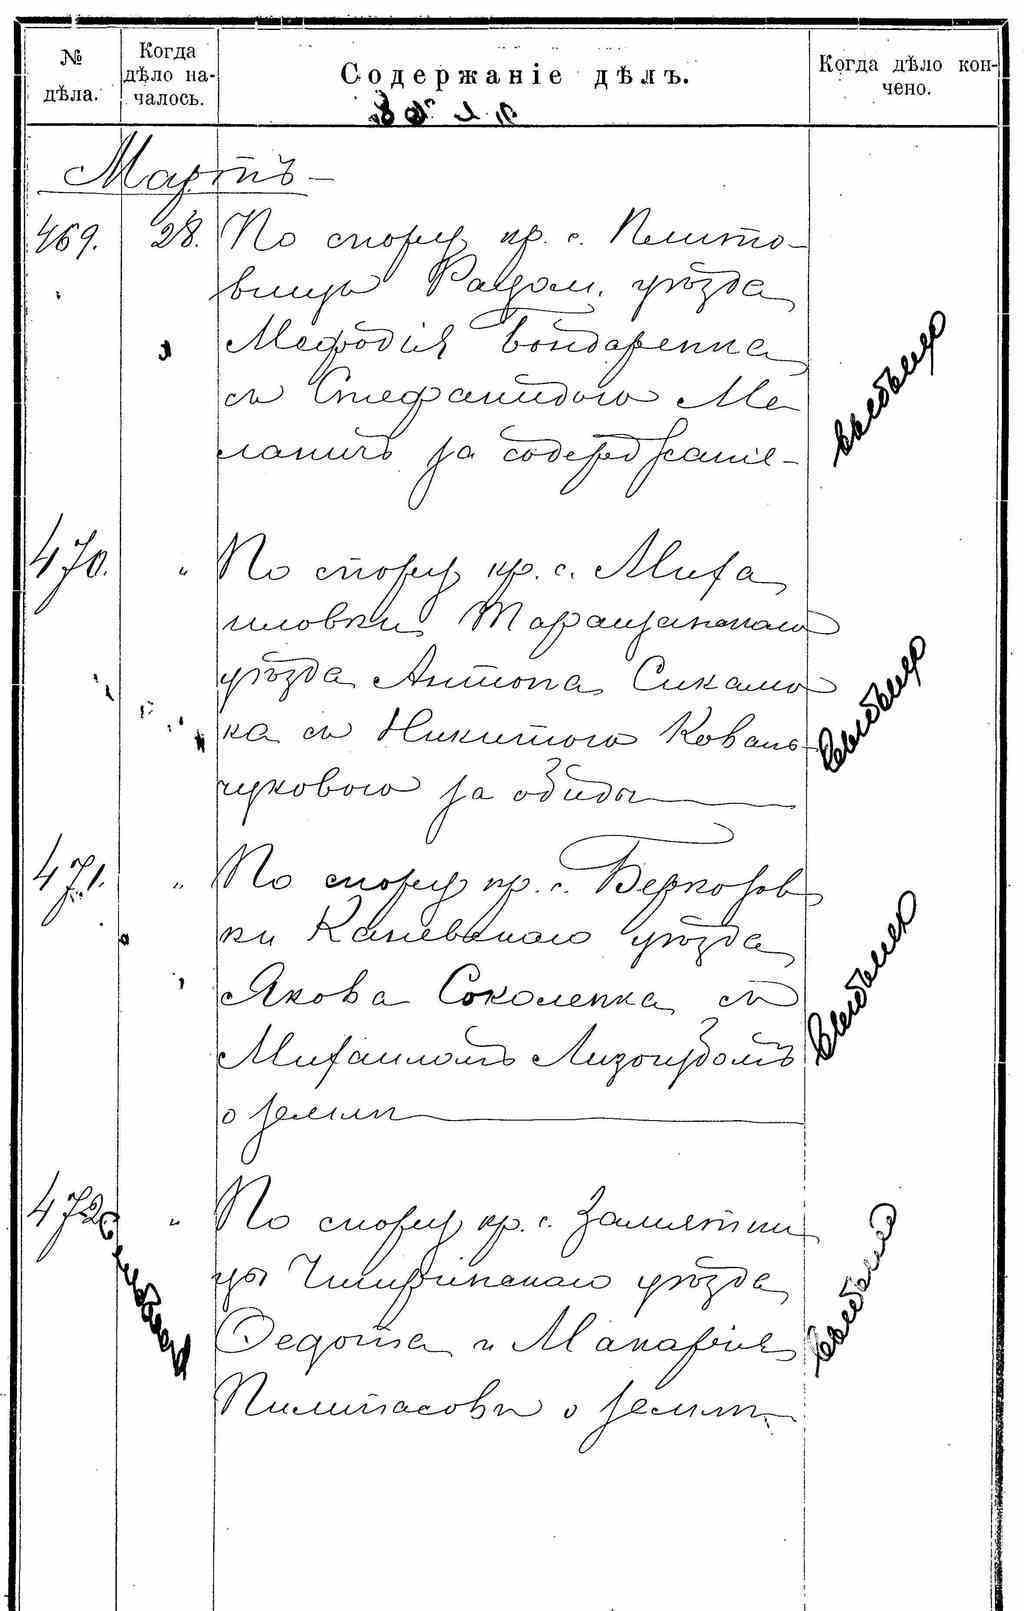 № дѣла.
Когда дѣло на-
чалось.
Содержаніе дѣлъ.
Когда дѣло кон-
чено.
Мартъ
469. 28. По спору кр. с. Плито-
вища Радом. уѣзда
Мефодія Бондаренка
съ Степанидою Ме-
ланич за содержаніе-
выбыло
470. " По спору кр. с. Миха
иловки Таращанскаго
уѣзда Антона Сикамо
ка съ Никитою Коваль-
чуковою за обиды
выбыло
471. " По спору кр. с. Беркозов
ки Каневскаго уѣзда
Якова Соколенка съ
Михаиломъ Лизогубомъ
о землѣ
выбыло
472 " По спору кр. с. Замятни
цы Чигиринскаго уѣзда
Федота и Макарія
Пилипасовъ о землѣ
выбыло